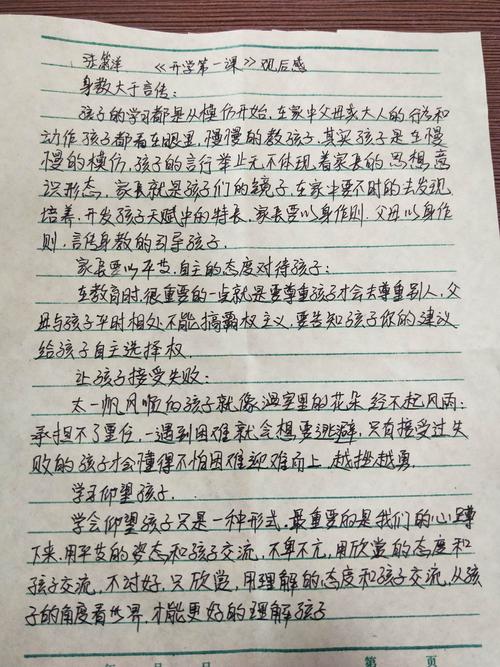 《开学第一课》观后感
身教大于言传：
孩子的学习都是从模仿开始，在家中父母亲大人的行为和
动作孩子都看在眼里，慢慢的教孩子，其实孩子是在慢
慢的模仿，孩子的言行举止无不体现着家长的思想，意
识形态，家长就是孩子们的镜子，在家中要不时的去发现
培养，开发孩子天赋中的特长，家长要以身作则，父母以身作
则，言传身教的引导孩子。
家长要以平等，自主的态度对待孩子：
在教育时，很重要的一点就是要尊重孩子才会去尊重别人，父
母与孩子平时相处不能搞霸权主义，要告知孩子你的建议
给孩子自主选择权。
让孩子接受失败：
太一帆风顺的孩子就像温室里的花朵经不起风雨；
承担不了重任，一遇到困难就会想要逃避，只有接受过失
败的孩子才会懂得不怕困难迎难而上，越挫越勇。
学习仰望孩子，
学会仰望孩子只是一种形式，最重要的是我们的心蹲
下来，用平等的姿态和孩子交流，不卑不亢，用欣赏的态度和
孩子交流，不讨好，只欣赏，用理解的态度和孩子交流，从孩
子的角度看世界，才能更好的理解孩子
年 月 日 第 页